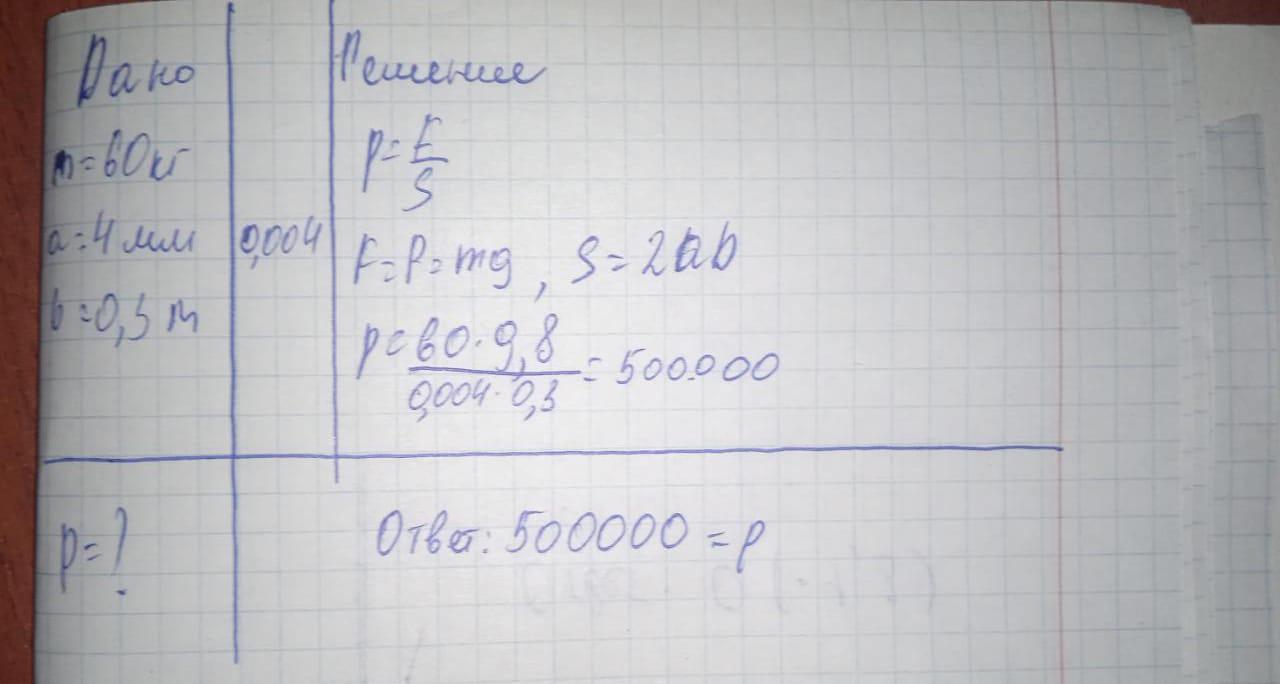 Дано
m=60кг
a=4мм
b=0,3 m
p=?
0,004
Решение
p=F/S
F=P=mg, S=2ab
p=60·9,8/0,004·0,3=500.000
Ответ: 500000=p